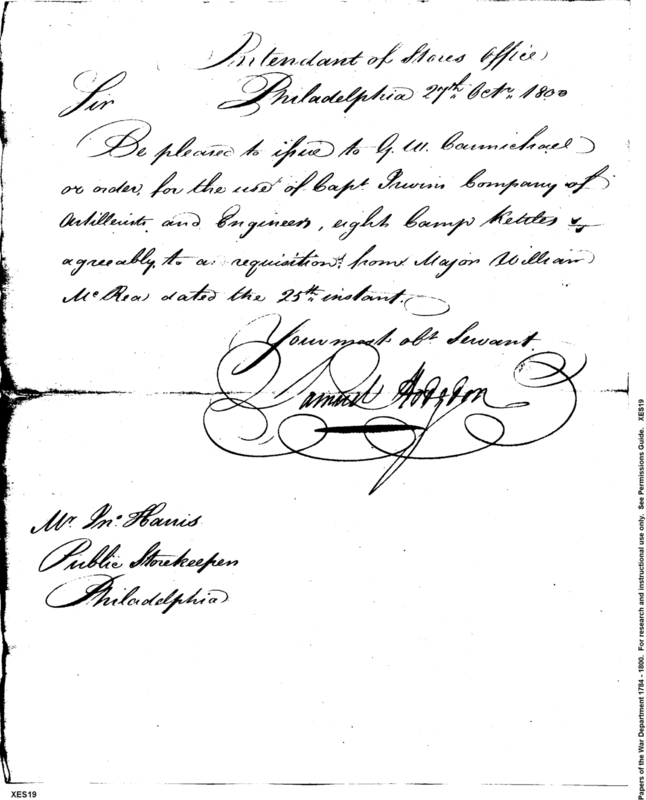 Intendant of Stores Office
Philadelphia 27th. Octr. 1800
Sir
Be pleased to issue to G. W. Carmichael
or order, for the use of Capt Irwins Company of
Artillerists and Engineers, eight Camp Kettles
agreeably to a requisition from Major William
McRea dated the 25th. instant.
Your most obt Servant
Samuel Hodgdon
Mr. Jno. Harris
Public Storekeeper
Philadelphia
XES19
Papers of the War Department 1784 - 1800. For research and instructional use only. See Permissions Guide. XES19